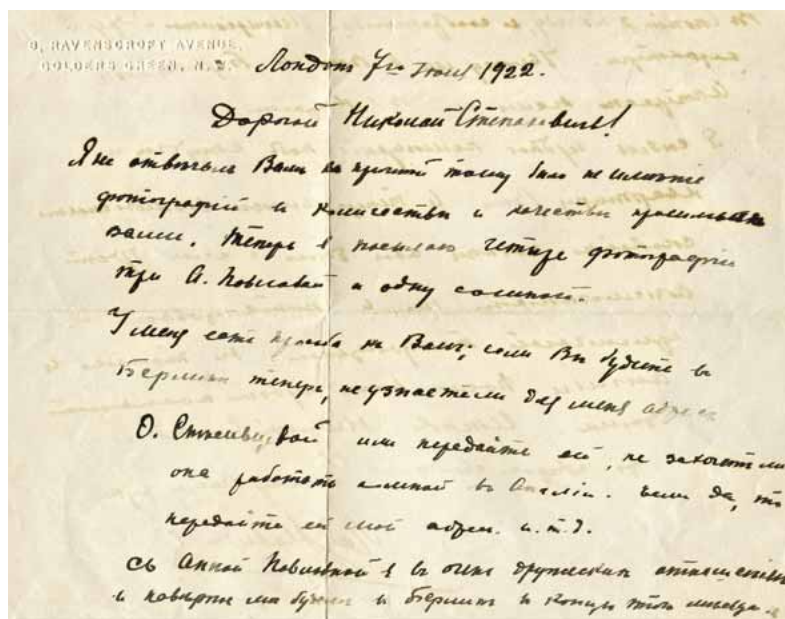 9, RAVENSCROFT AVENUE,
GOLDERS GREEN, N.W.
Лондон 7го 1922.
Дорогой Николай Степановичъ!
Я не отвечалъ Вамъ по простой тому было не
фотографий и количества и качества
вами. Теперь я посылаю четыре фотографии
три А. Павловой и одну
У меня есть просьба къ Вамъ; если Вы будете в
Берлине теперь, не узнаете ли для меня адрес
О. или передайте ей, не захочет ли
она работать со мной въ Англии. Если да, то
передайте ей мой адрес. и. т. д.
Съ Анной Павловной я в очень дружеских отношениях
и мы будем в Берлине в конце этого месяца